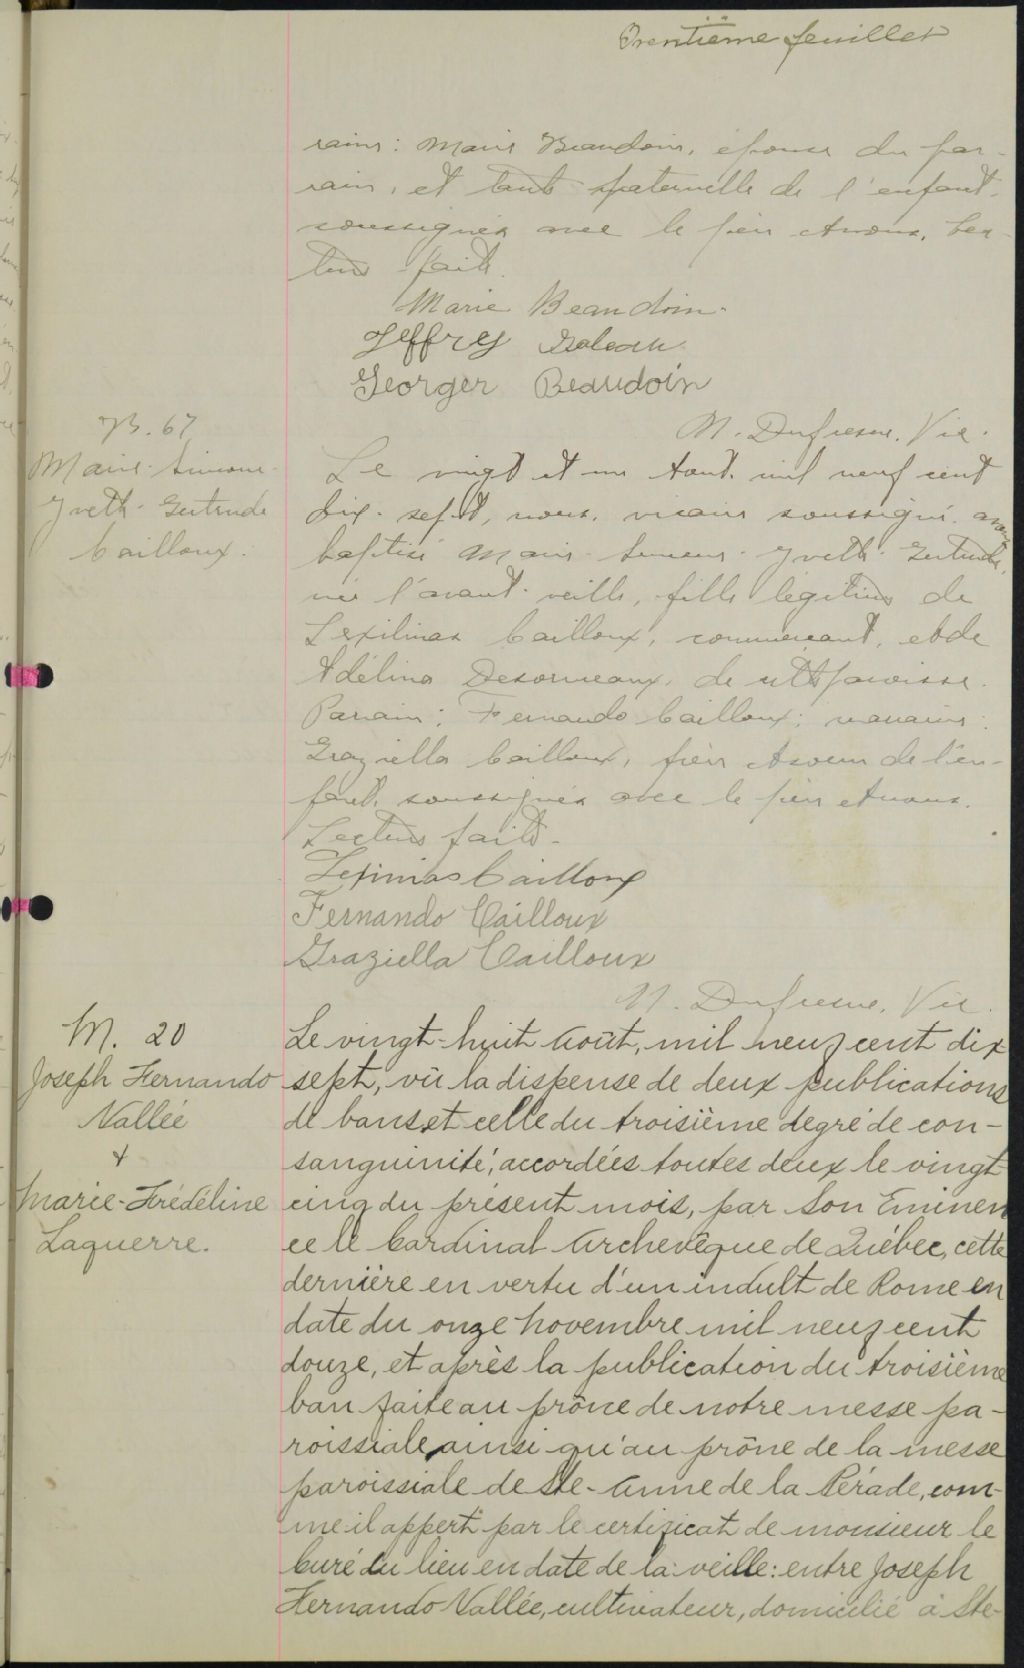 Trentième feuillet
raine: Marie Beaudoin, épouse du par-
rain, et tante paternelle de l'enfant,
soussignés avec le père et nous. Lec-
ture faite.
Marie Beaudoin.
Jeffrey
Georger Beaudoin
N. Dufresne, Vic.
B. 67
Marie-Simone-
Yveth-Gertrude
Cailloux.
Le vingt et un août, mil neuf cent
dix-sept, nous, vicaire soussigné, avons
baptisé Marie-Simone-Yveth-Gertrude,
née l'avant-veille, fille légitime de
Cailloux, commerçant, et de
Adélina Desormeaux, de cette paroisse.
Parrain: Fernando Cailloux; marraine:
Graziella Cailloux, frère et soeur de l'en-
fant, soussignés avec le père et nous.
Lecture faite.
Cailloux
Fernando Cailloux
Graziella Cailloux
N. Dufresne, Vic.
M. 20
Joseph Fernando
Vallée
&
Marie-Frédéline
Laquerre.
Le vingt-huit Août, mil neuf cent dix
sept, vù la dispense de deux publications
de bans, et celle du troisième degré de con-
sanguinité, accordées toutes deux le vingt
cinq du présent mois, par Son Eminen
ce le Cardinal Archevêque de Québec, cette
dernière en vertu d'un indult de Rome en
date du onze novembre mil neuf cent
douze, et après la publication du troisième
ban faite au prône de notre messe pa-
roissiale, ainsi qu'au prône de la messe
paroissiale de Ste-Anne de la Pérade, com-
me il appert par le certificat de monsieur le
Curé du lieu en date de la veille: entre Joseph
Fernando Vallée, cultivateur, domicilié à Ste-